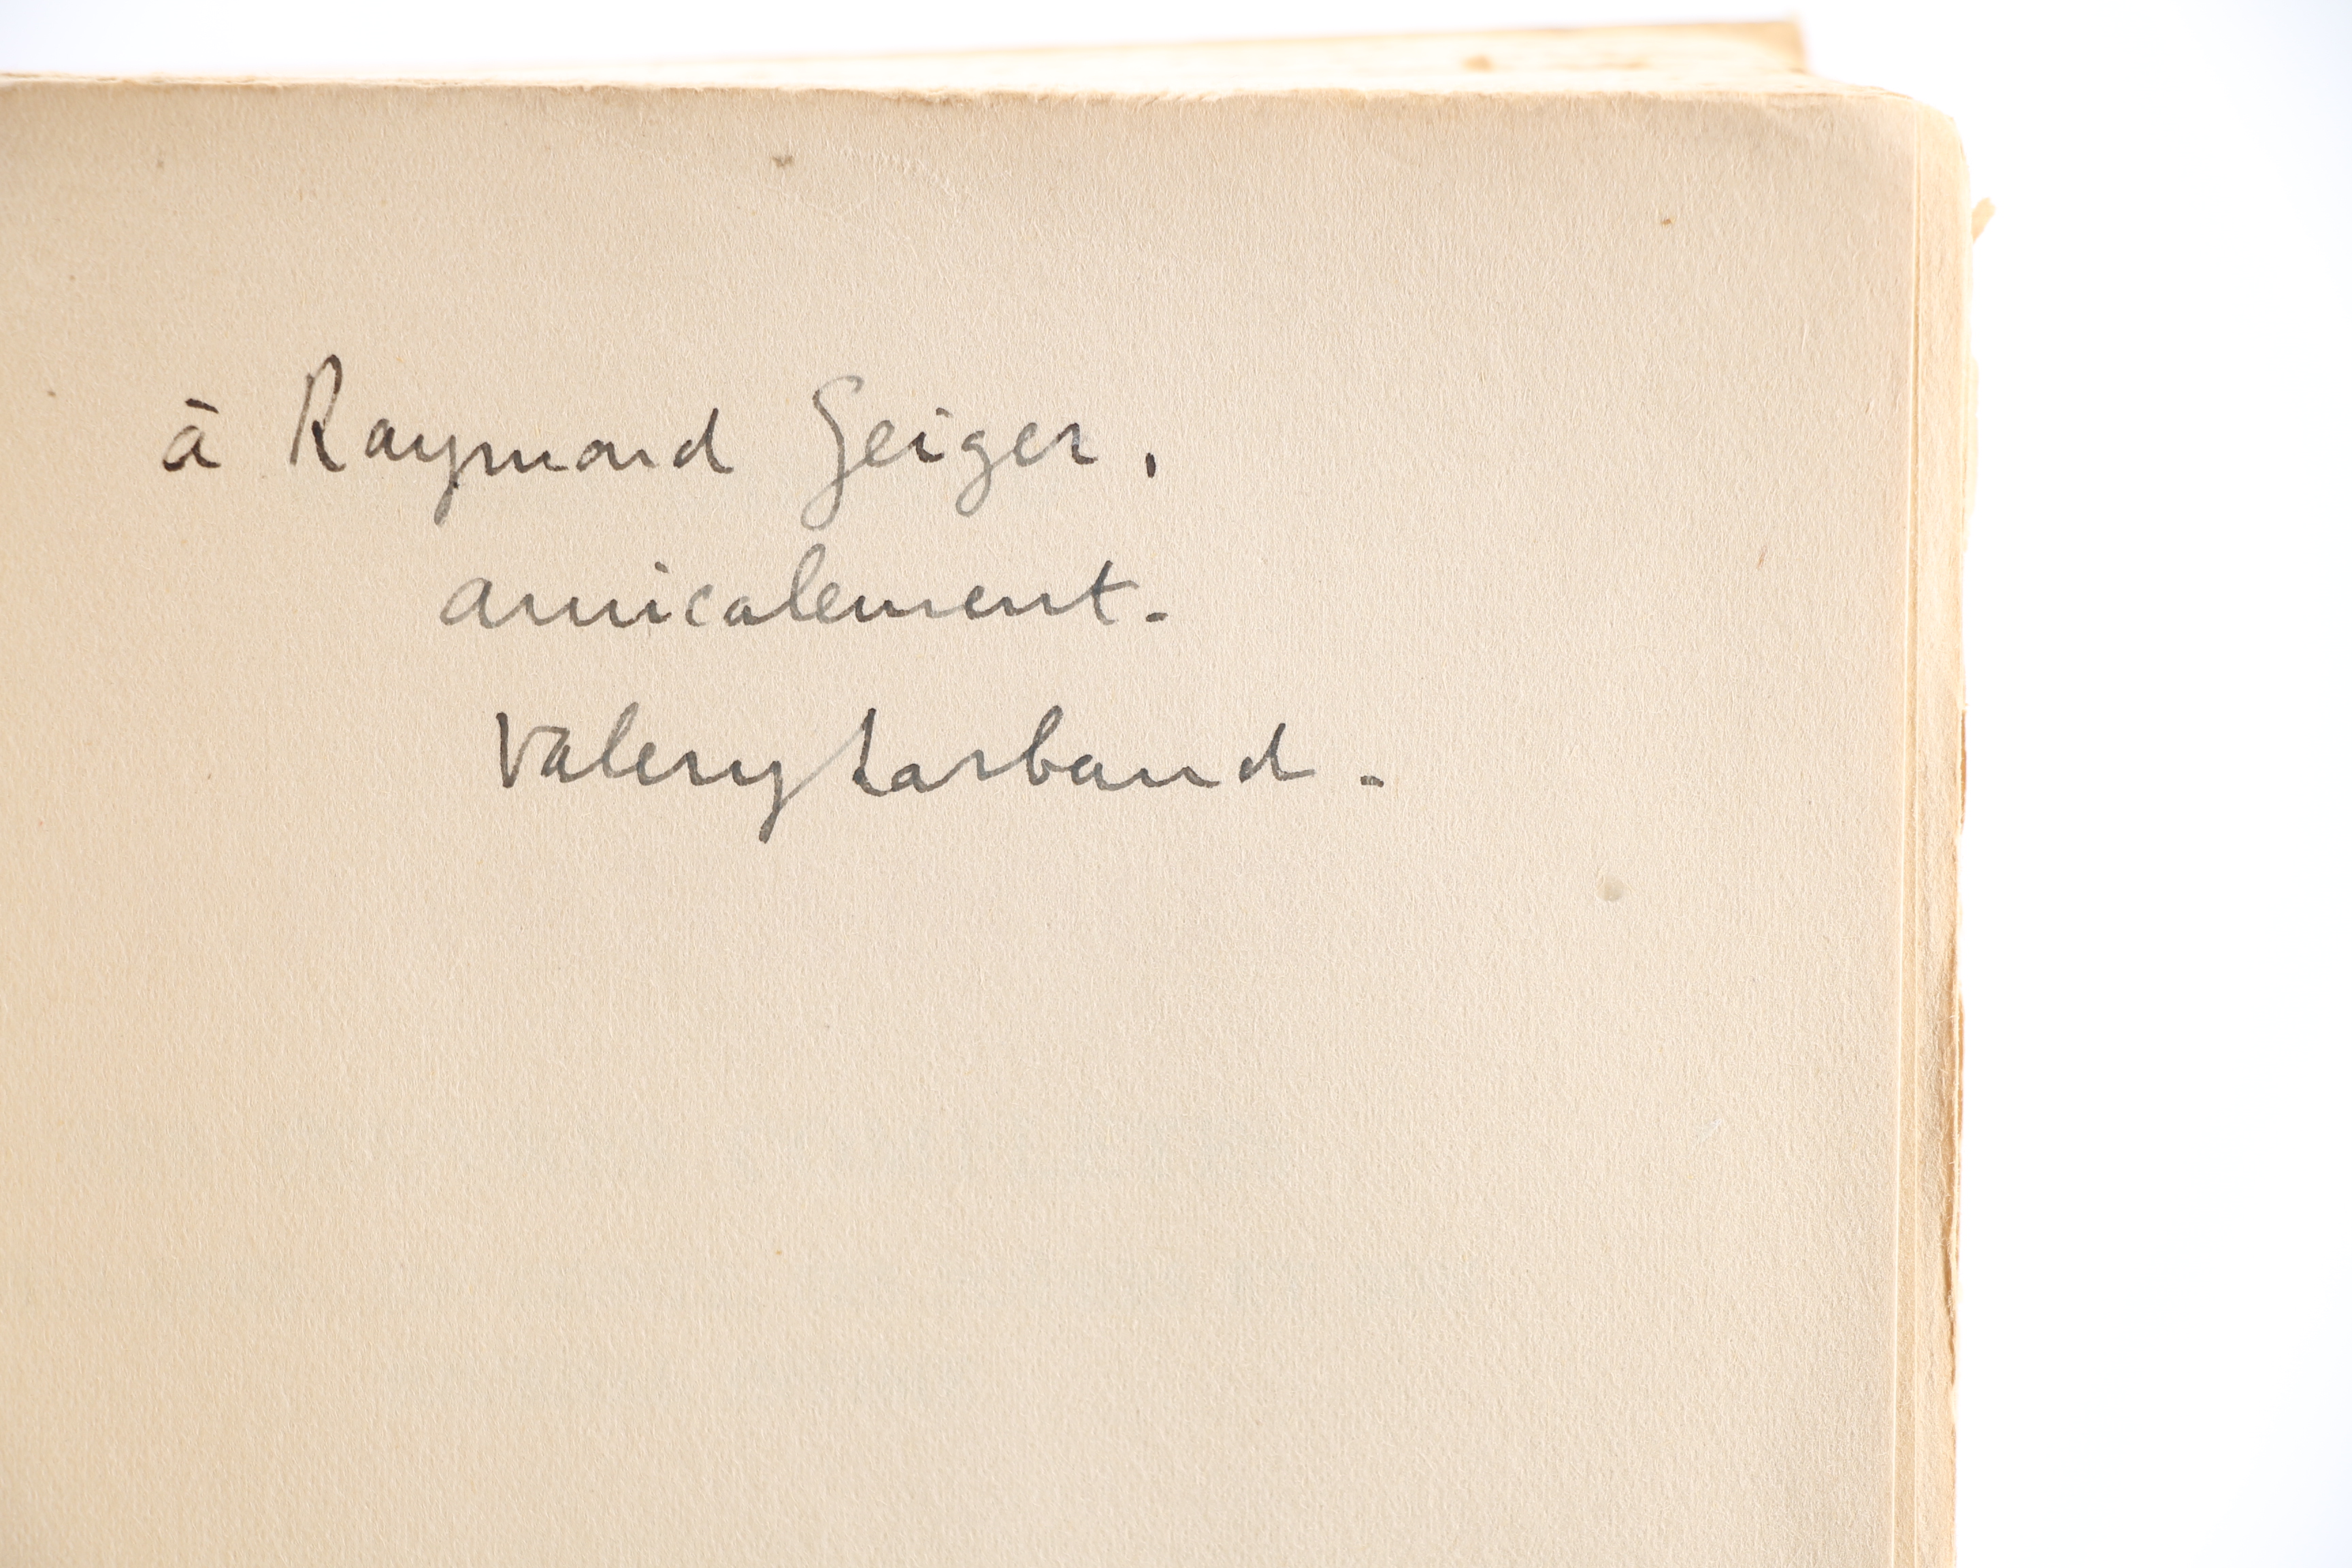 à Raymond Geiger,
amicalement.
Valery Larbaud.